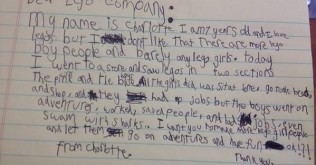 Dear Lego company:
My name is Charlotte. I am 7 years old and I love
legos but I dont like that There are more lego
boy people and barely any lego girls. today
I went to a store and saw legos in two sections
The pink and the blue. All the girls did was sit at home, go to the beach,
and shop, and they had no jobs but the boys went on
adventures, worked, saved people, and had jobs, even
swam with sharks. I want you to make more lego girl people
and let them go on adventures and have fun ok!?!
Thank you.
From Charlotte.